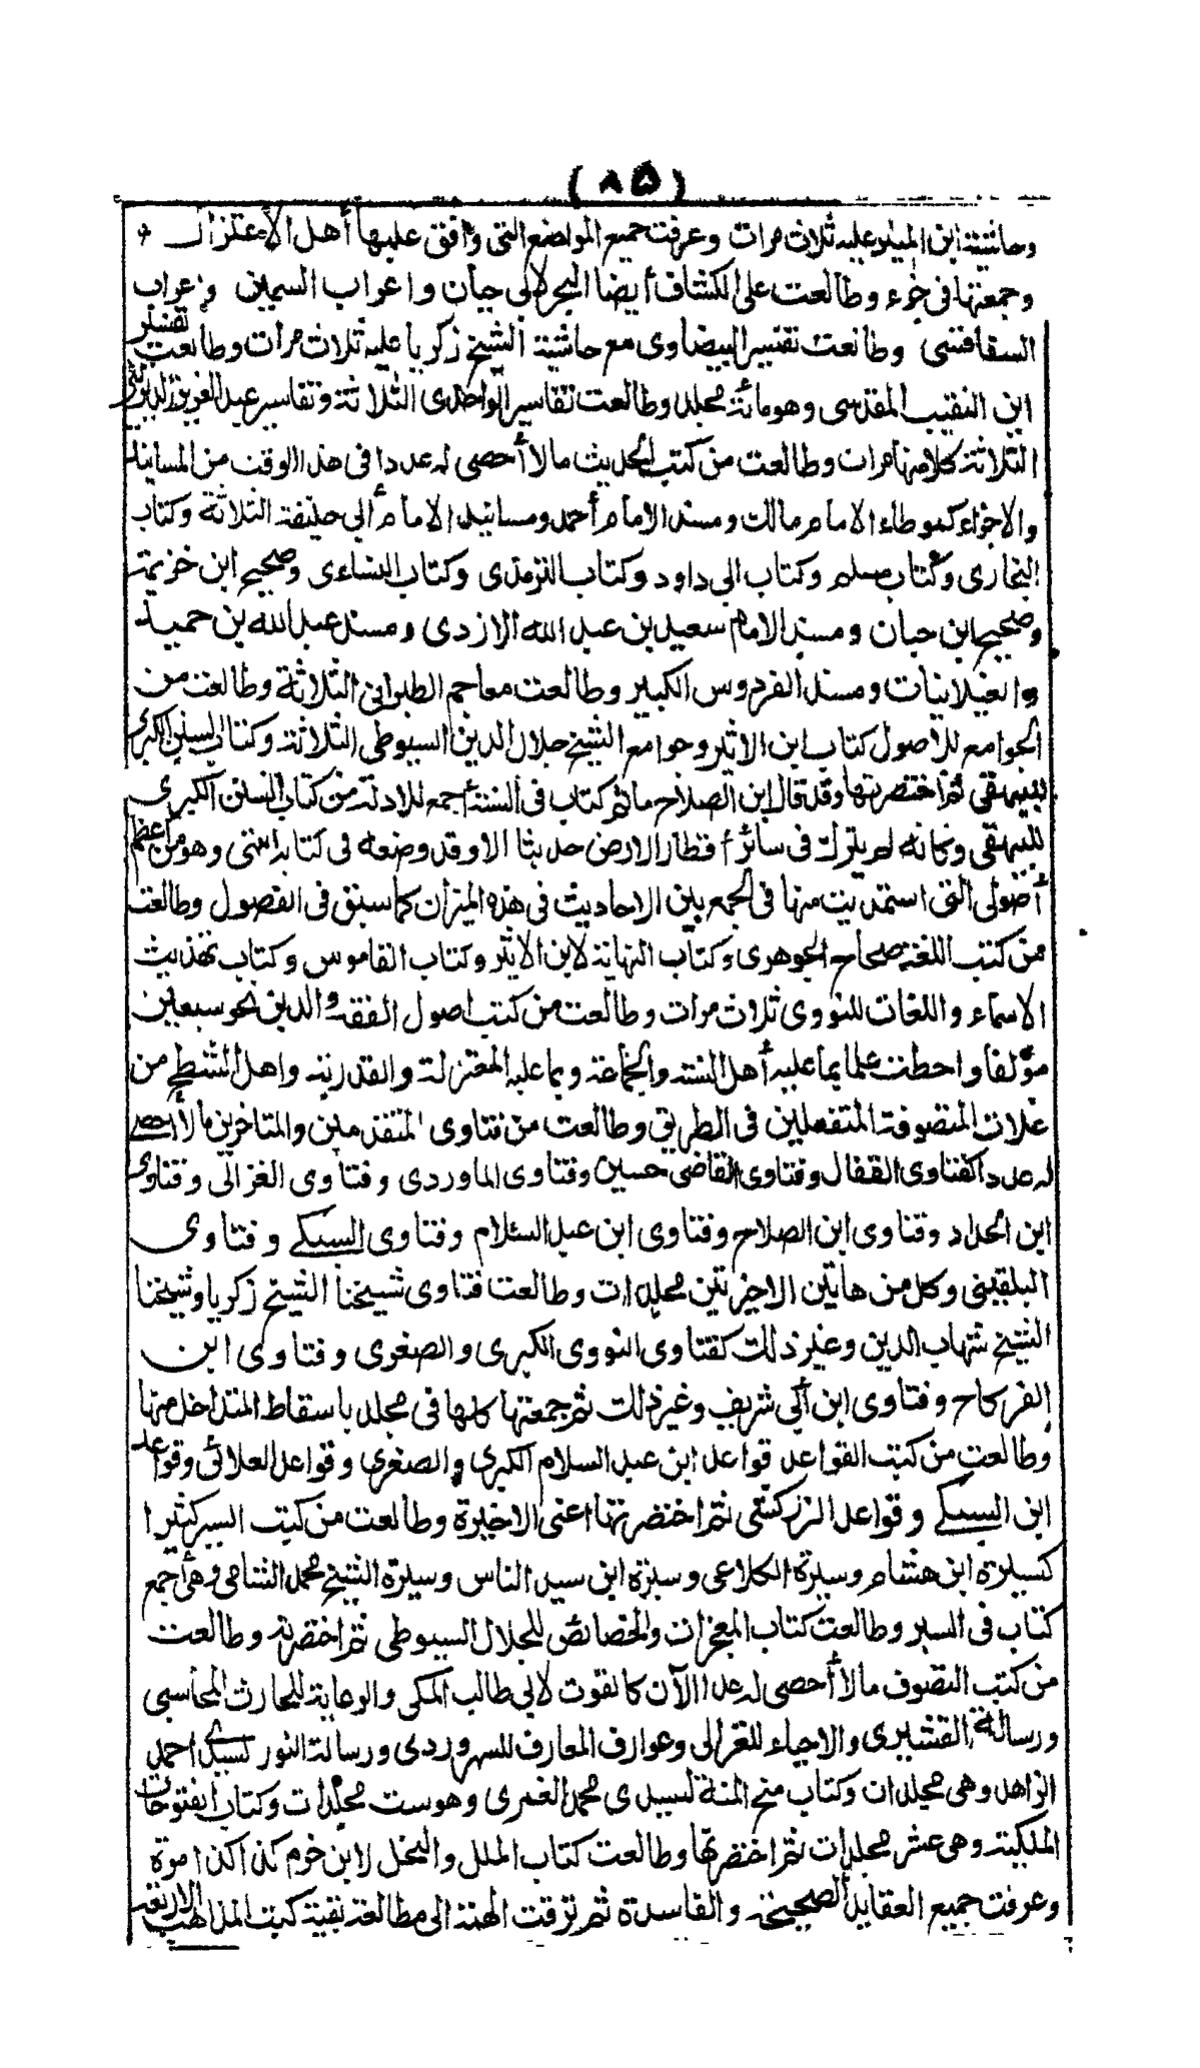 (٨٥)
وحاشية ابن المنير عليه ثلاث مرات وعرفت جميع المواضع التى وافق عليها أهل الأعتزال
وجمعتها فى جزء وطالعت على الكشاف أيضا البحر لأبى حيان واعراب السمين واعراب
السفاقسى وطالعت تفسير البيضاوى مع حاشية الشيخ زكريا عليه ثلاث مرات وطالعت تفسير
ابن النقيب المقدسى وهو مائة مجلد وطالعت تفاسير الواحدى الثلاثة وتفاسير عبد العزيز الديرينى
الثلاثة كلا منها مرات وطالعت من كتب الحديث مالا أحصى له عددا فى هذا الوقت من المسانيد
والاجزاء كموطاء الامام مالك ومسند الامام أحمد ومسانيد الامام أبى حنيفة الثلاثة وكتاب
البخارى وكتاب مسلم وكتاب ابى داود وكتاب الترمذى وكتاب النساءى وصحيح ابن خزيمة
وصحيح ابن حبان ومسند الامام سعيد بن عبد الله الازدى ومسند عبد الله بن حميد
والغيلانيات ومسند الفردوس الكبير وطالعت معاجم الطبرانى الثلاثة وطالعت من
الجوامع للأصول كتاب ابن الاثير وجوامع الشيخ جلال الدين السيوطى الثلاثة وكتاب السنن الكبرى
للبيهقى ثم اختصرتها وقد قال ابن الصلاح ما ثم كتاب فى السنة أجمع للادلة من كتاب السنن الكبرى
للبيهقى وكأنه لم يترك فى سائر أقطار الارض حديثا الا وقد وضعه فى كتابه انتهى وهو من أعظم
أصولى التى استمديت منها فى الجمع بين الاحاديث فى هذه الميزان كما سبق فى الفصول وطالعت
من كتب اللغة صحاح الجوهرى وكتاب النهاية لابن الاثير وكتاب القاموس وكتاب تهذيب
الاسماء واللغات للنووى ثلاث مرات وطالعت من كتب اصول الفقه والدين نحو سبعين
مؤلفا واحطت علما بما عليه أهل السنة والجماعة وبما عليه المعتزلة والقدرية واهل الشطح من
غلات المتصوفة المتفعلين فى الطريق وطالعت من فتاوى المتقدمين والمتاخرين مالا أحصى
له عددا كفتاوى القفال وفتاوى القاضى حسين وفتاوى الماوردى وفتاوى الغزالى وفتاوى
ابن الحداد وفتاوى ابن الصلاح وفتاوى ابن عبد السلام وفتاوى السبكى وفتاوى
البلقينى وكل من هاتين الاخيرتين مجلدات وطالعت فتاوى شيخنا الشيخ زكريا وشيخنا
الشيخ شهاب الدين وغير ذلك كفتاوى النووى الكبرى والصغرى وفتاوى ابن
الفركاح وفتاوى ابن أبى شريف وغير ذلك ثم جمعتها كلها فى مجلد باسقاط المتداخل منها
وطالعت من كتب القواعد قواعد ابن عبد السلام الكبرى والصغرى وقواعد العلائى وقواعد
ابن السبكى وقواعد الزركشى ثم اختصرتها اعنى الاخيرة وطالعت من كتب السير كثيرا
كسيرة ابن هشام وسيرة الكلاعى وسيرة ابن سيد الناس وسيرة الشيخ محمد الشامى وهى أجمع
كتاب فى السير وطالعت كتاب المعجزات والخصائص للجلال السيوطى ثم اختصرته وطالعت
من كتب التصوف مالا أحصى له عددا الآن كالقوت لابى طالب المكى والرعاية للحارث المحاسبى
ورسالة القشيرى والاحياء للغزالى وعوارف المعارف للسهروردى ورسالة النور لسيدى احمد
الزاهد وهى مجلدان وكتاب منح المنة لسيدى محمد الغمرى وهو ست مجلدات وكتاب الفتوحات
الملكية وهى عشر مجلدات ثم اختصرتها وطالعت كتاب الملل والنحل لابن حزم كذا كذا مرة
وعرفت جميع العقايد الصحيحة والفاسدة ثم ترقت الهمة الى مطالعة بقية كتب المذاهب الاربعة